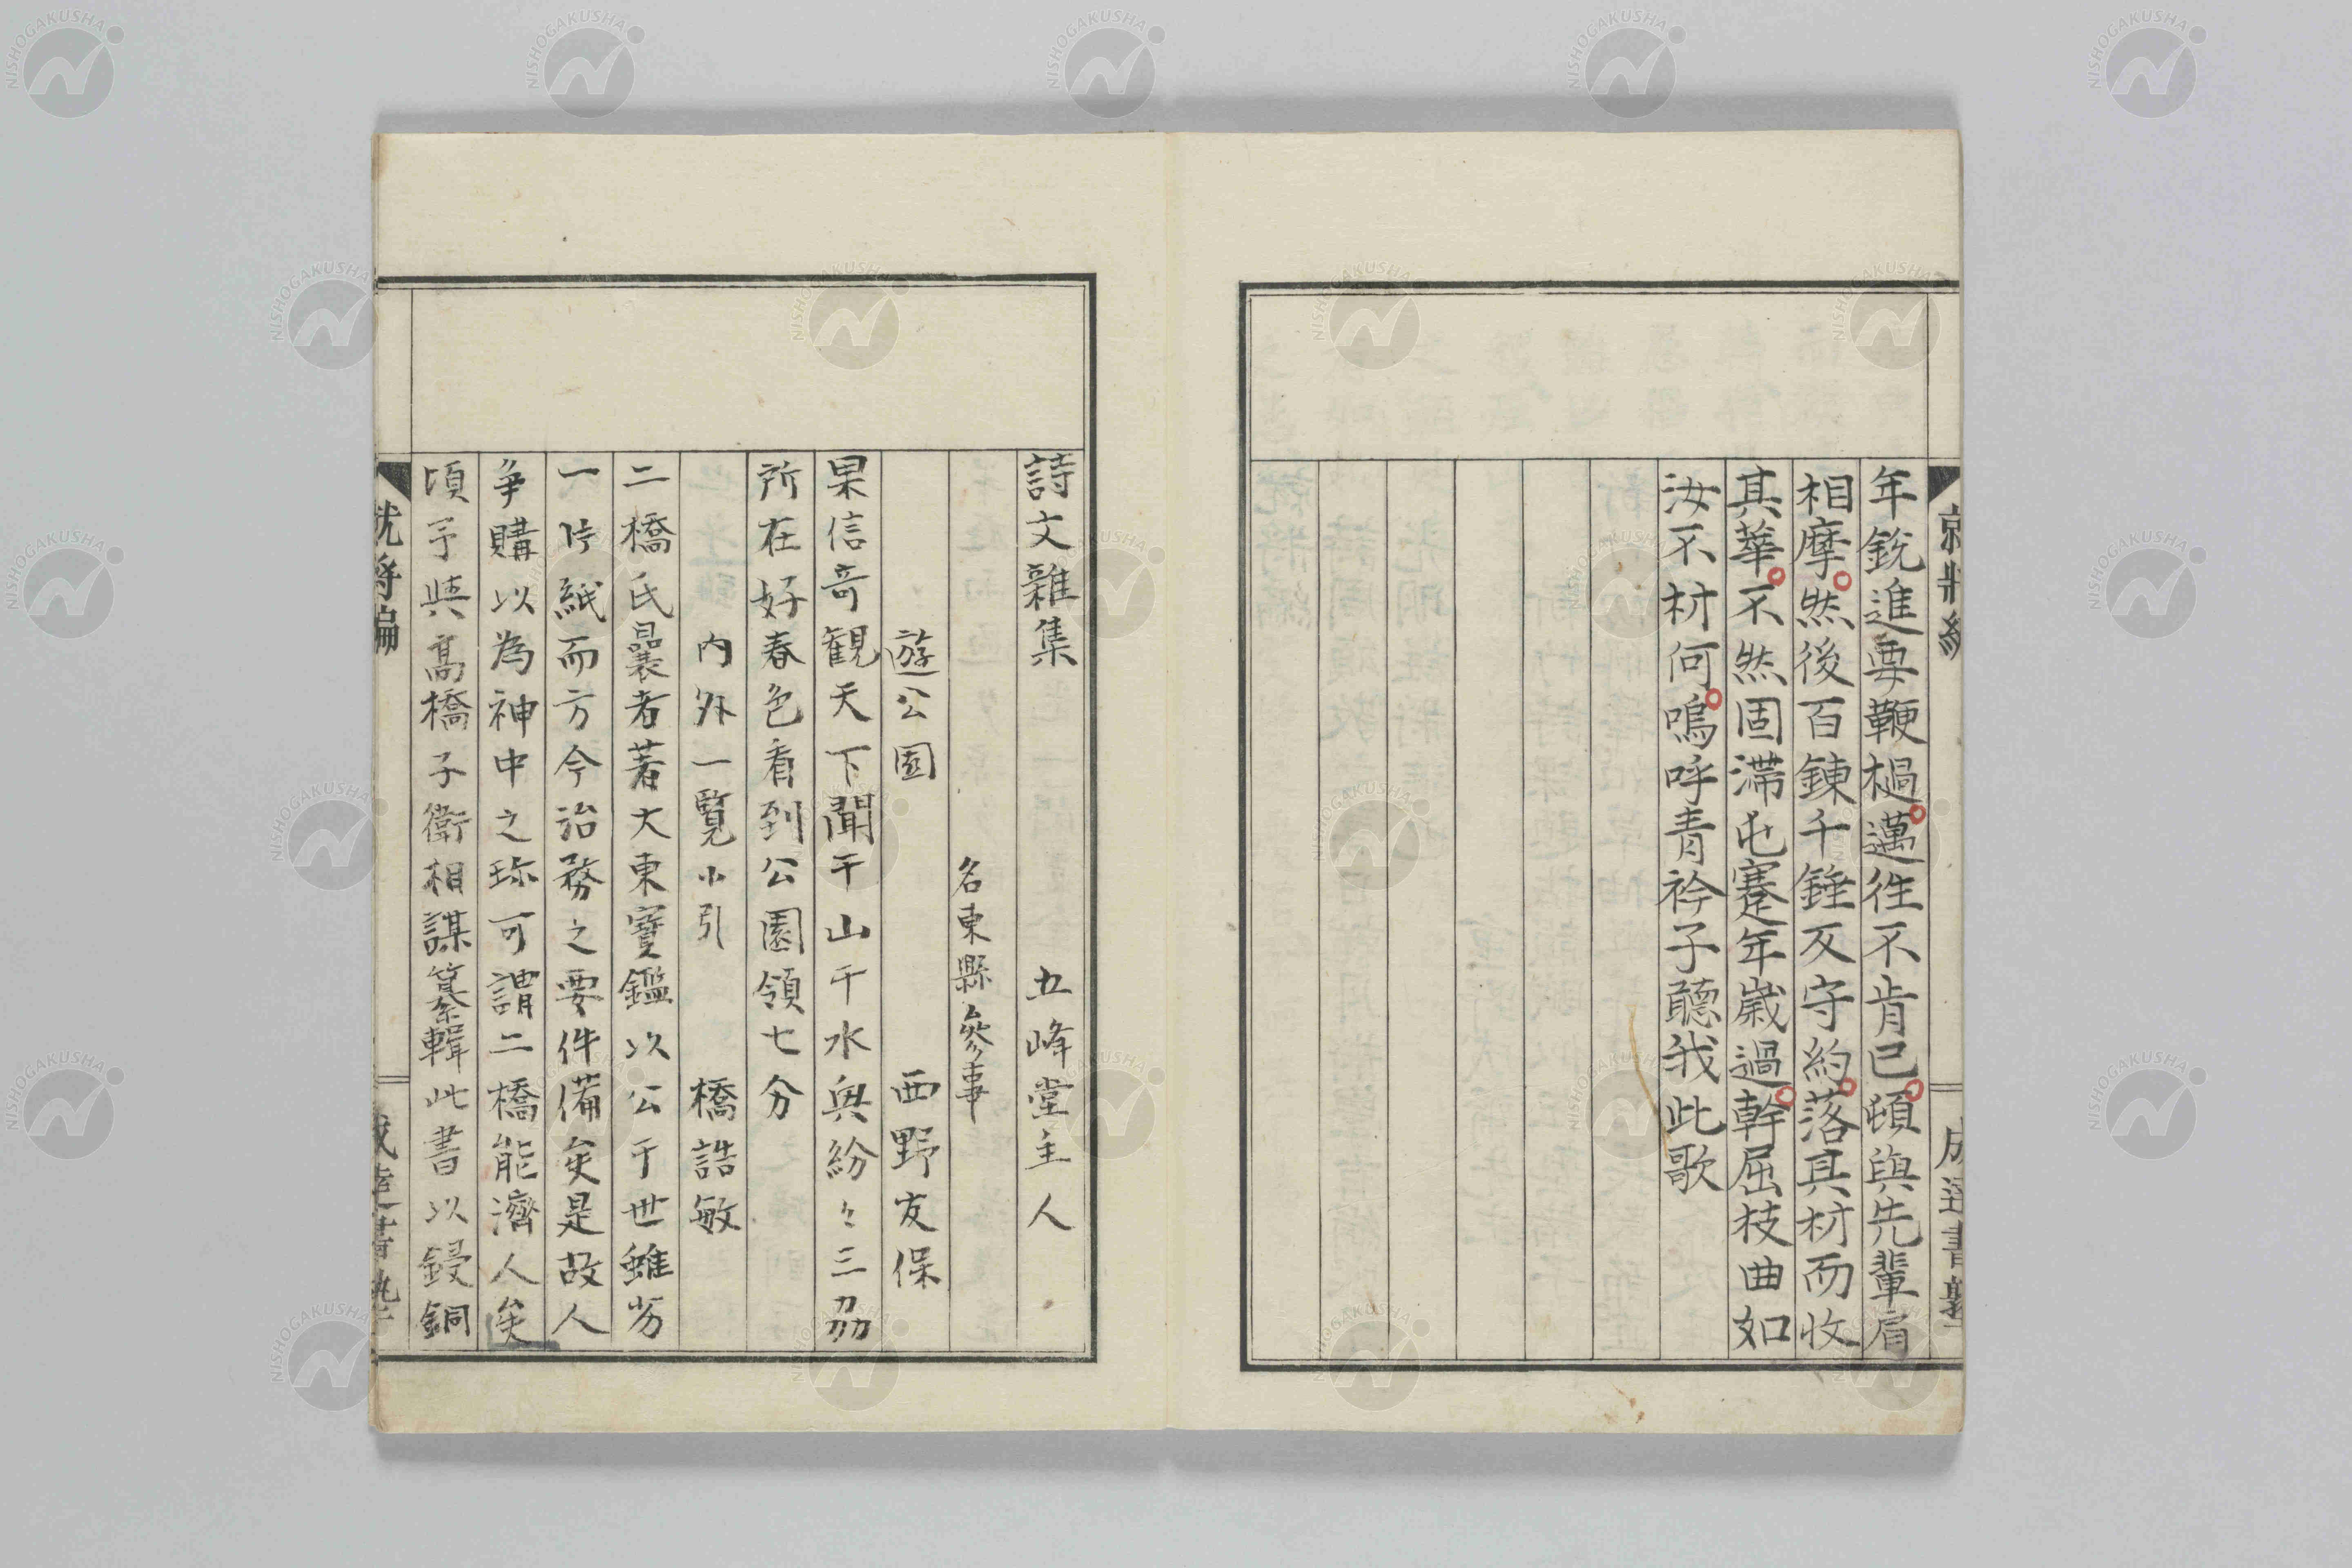 年銳進要鞭檛邁徃不肯已頓與先輩肩
相摩然後百錬千錘又守約落其材而收
其華不然固滞屯蹇年歳過幹屈枝曲如
汝不材何嗚呼青衿子聽我此歌
成達書塾
詩文雜集　五峰堂主人
名東縣參事
遊公園　西野友保
果信奇観天下聞千山千水與紛々三刕
所在好春色看到公園領七分
内外一覧小引　橋誥敏
二橋氏曩者著大東寶鑑以公于世雖芴
一片紙而方今治務之要件備矣是故人
争購以為神中之珎可謂二橋能濟人矣
頃予與髙橋子衛相謀纂輯此書以鋟銅
就將編
NISHOGAKUSHA